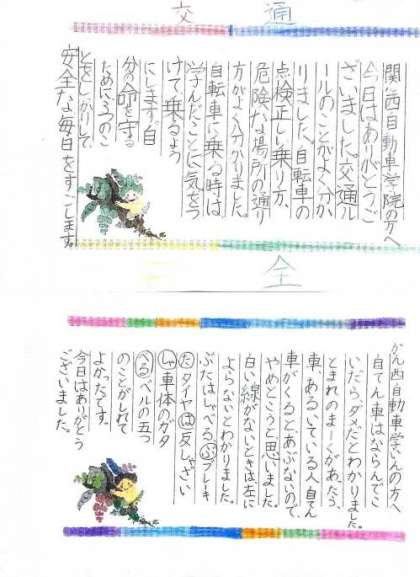 交通
関西自動車学院の方へ
今日はありがとうご
ざいました。交通ル
ールのことがよく分か
りました。自転車の
点検正しい乗り方、
危険な場所の通り
方がよく分かりました。
自転車に乗る時は
学んだことに気をつ
けて乗るよう
にします。自
分の命を守る
ために3つのこ
とをしっかりして、
安全な毎日をすごします。
全
かん西自動車学いんの方へ
自てん車はならんでこ
いだら、ダメだとわかりました。
とまれのまーくがあったら、
車、あるいている人、自てん
車がくると、あぶないので、
やめとこうと思いました。
白い線がないときは左に
よらないとわかりました。
ぶたはしゃべる㋫ブレーキ
たタイヤは反しゃざい
しゃ車体のガタ
べるベルの五つ
のことがしれて
よかったです。
今日はありがとう
ございました。